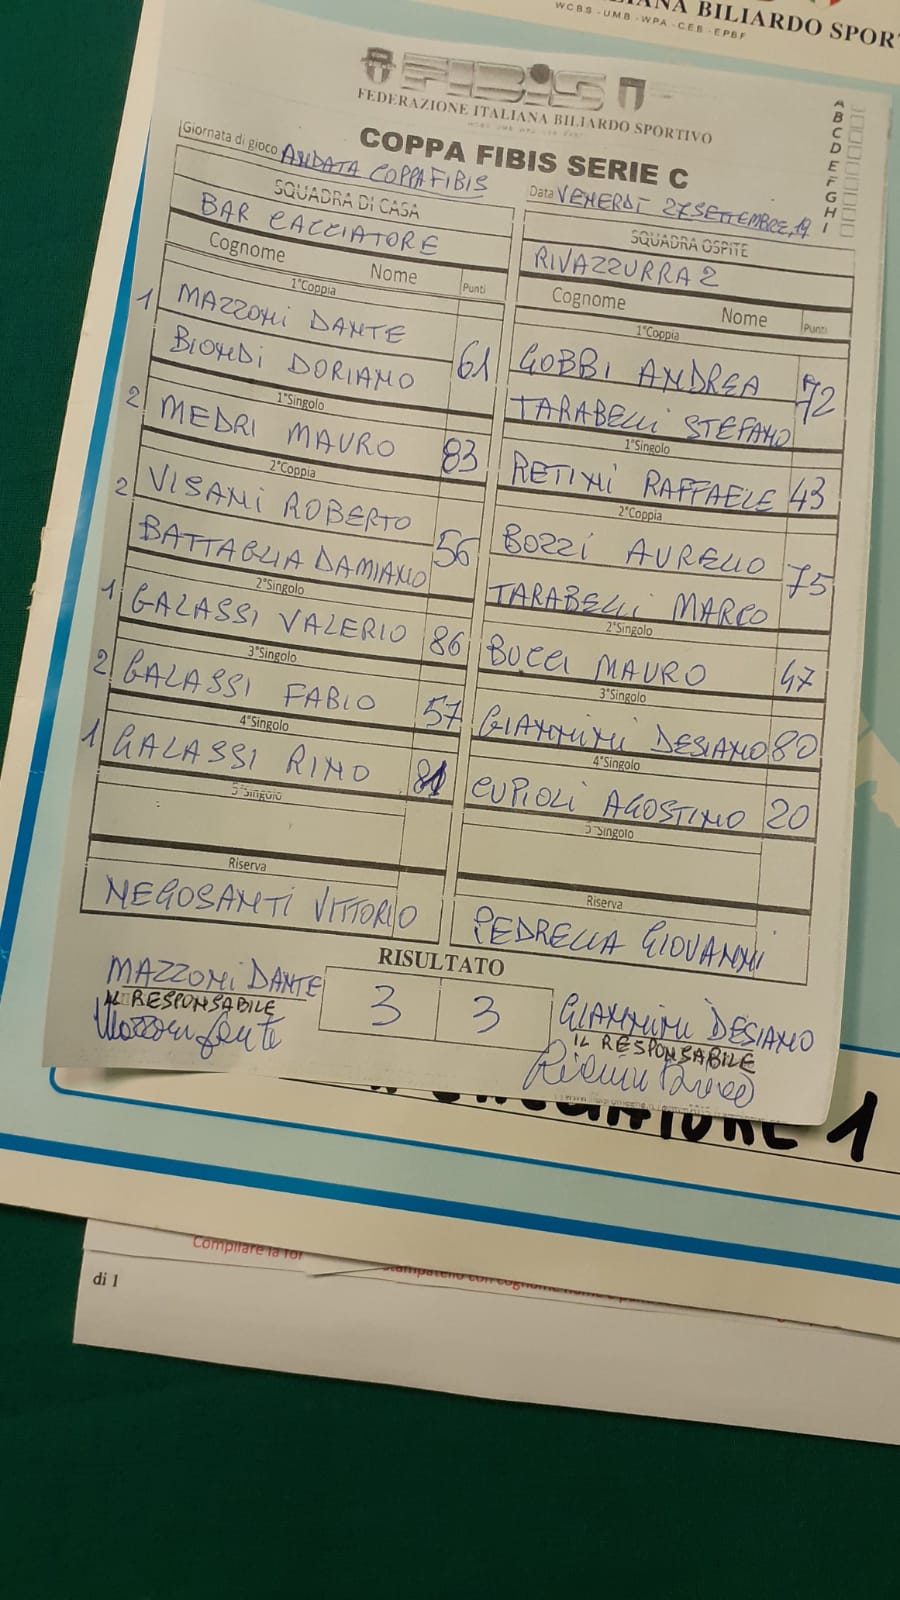 ITALIANA BILIARDO SPOR
WCBS - UMB - WPA - CEB - EPBF
FIBIS
FEDERAZIONE ITALIANA BILIARDO SPORTIVO
COPPA FIBIS SERIE C
A
B
C
D
E
F
G
H
I
Giornata di gioco ANDATA COPPA FIBIS
Data VENERDÌ 27 SETTEMBRE, 19
SQUADRA DI CASA
BAR CACCIATORE
Cognome Nome Punti
1°Coppia
1 MAZZONI DANTE
BIONDI DORIANO 61
1°Singolo
2 MEDRI MAURO 83
2°Coppia
2 VISANI ROBERTO
BATTAGLIA DAMIANO 56
2°Singolo
1 GALASSI VALERIO 86
3°Singolo
2 GALASSI FABIO 57
4°Singolo
1 GALASSI RINO 81
5°Singolo
Riserva
NEGOSANTI VITTORIO
SQUADRA OSPITE
RIVAZZURRA 2
Cognome Nome Punti
1°Coppia
GOBBI ANDREA
TARABELLI STEFANO 72
1°Singolo
RETINI RAFFAELE 43
2°Coppia
BOZZI AURELIO
TARABELLI MARCO 75
2°Singolo
BUCCI MAURO 47
3°Singolo
GIANNINI DESIANO 80
4°Singolo
CUPIOLI AGOSTINO 20
5°Singolo
Riserva
PEDRELLA GIOVANNI
RISULTATO
3 3
MAZZONI DANTE
IL RESPONSABILE
Mazzoni Dante
GIANNINI DESIANO
IL RESPONSABILE
1
Compilare la for
stampatello con cognome nome e
di 1